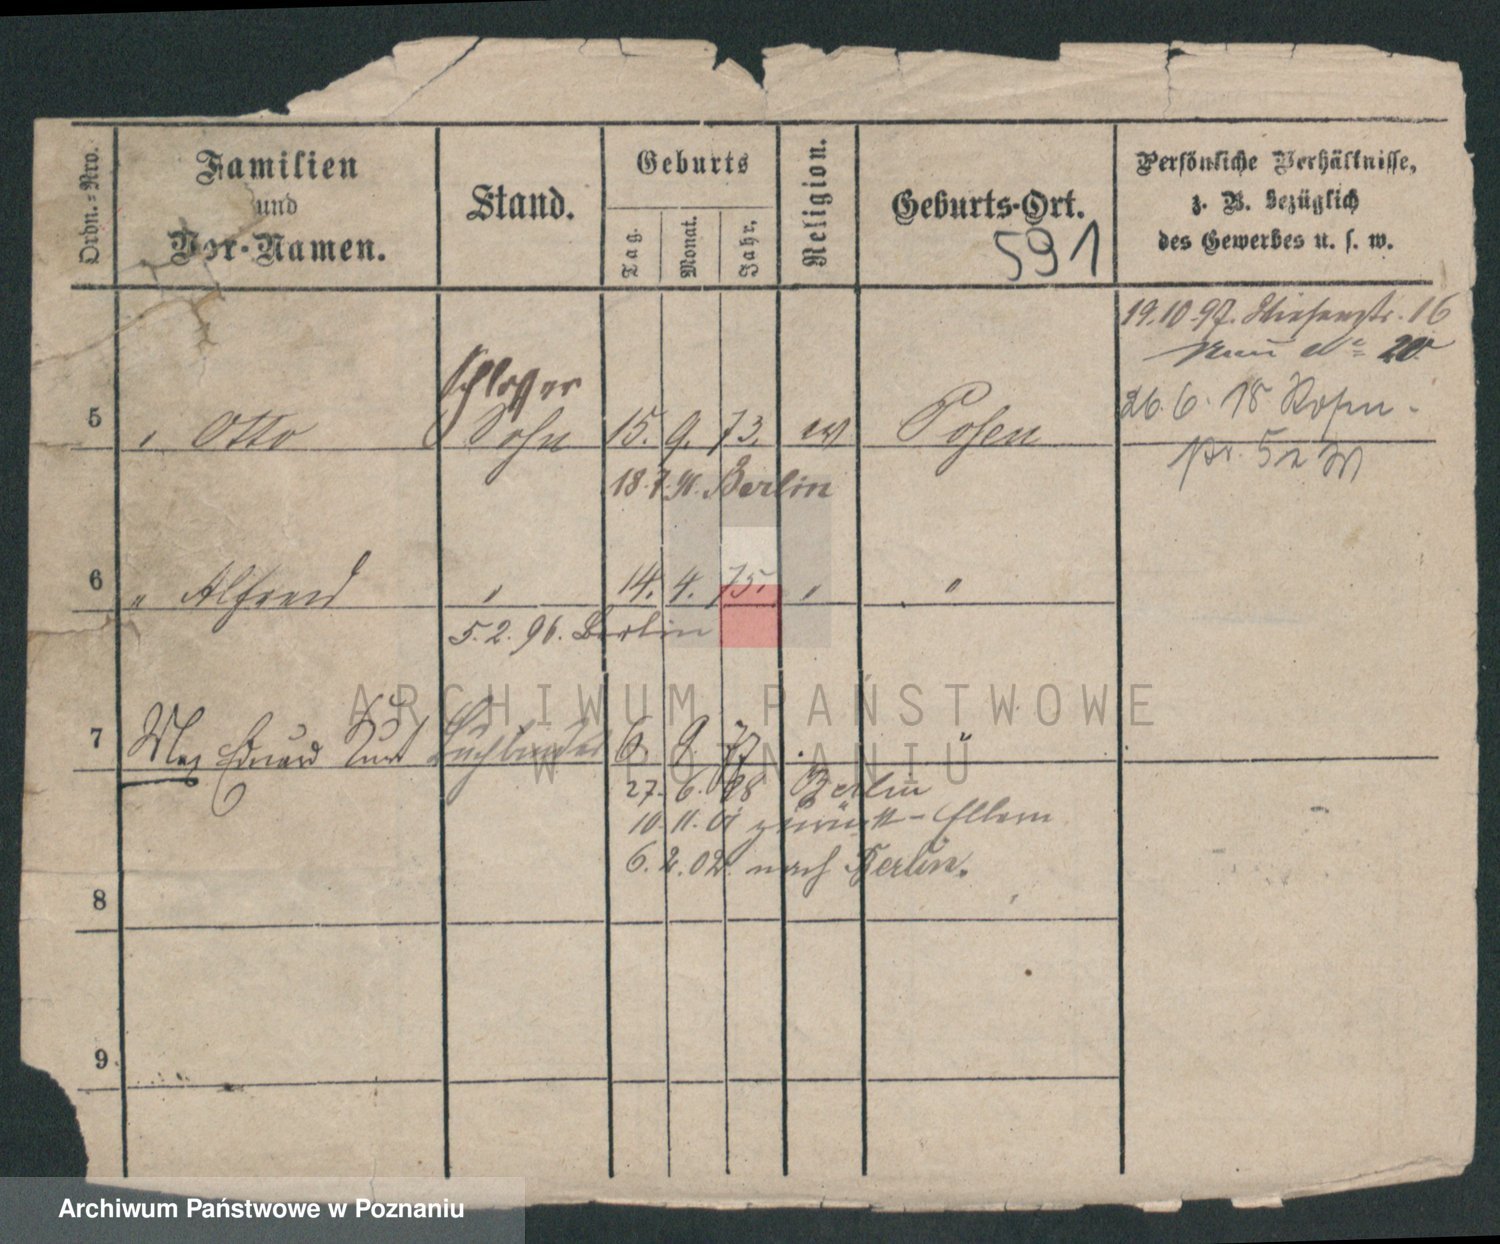 Ordn.-Nro.
Familien
und
Vor-Namen.
Stand.
Geburts
Tag.
Monat.
Jahr.
Religion.
Geburts-Ort.
591
Persönliche Verhältnisse,
z. B. bezüglich
des Gewerbes u. s. w.
19.10.97. 16
20
26.6.18
Schlosser
5 " Otto Sohn 15. 9. 73. ev Posen
18.7.91. Berlin
6 " Alfred " 14. 4. 75. " "
5.2.96. Berlin
7 Max Eduard Kurt Buchbinder 6. 9. 77
27. 6. 98 Berlin
10. 11. 01 zurück - Eltern
6. 2. 02. nach Berlin.
8
9
ARCHIWUM PAŃSTWOWE
W POZNANIU
Archiwum Państwowe w Poznaniu